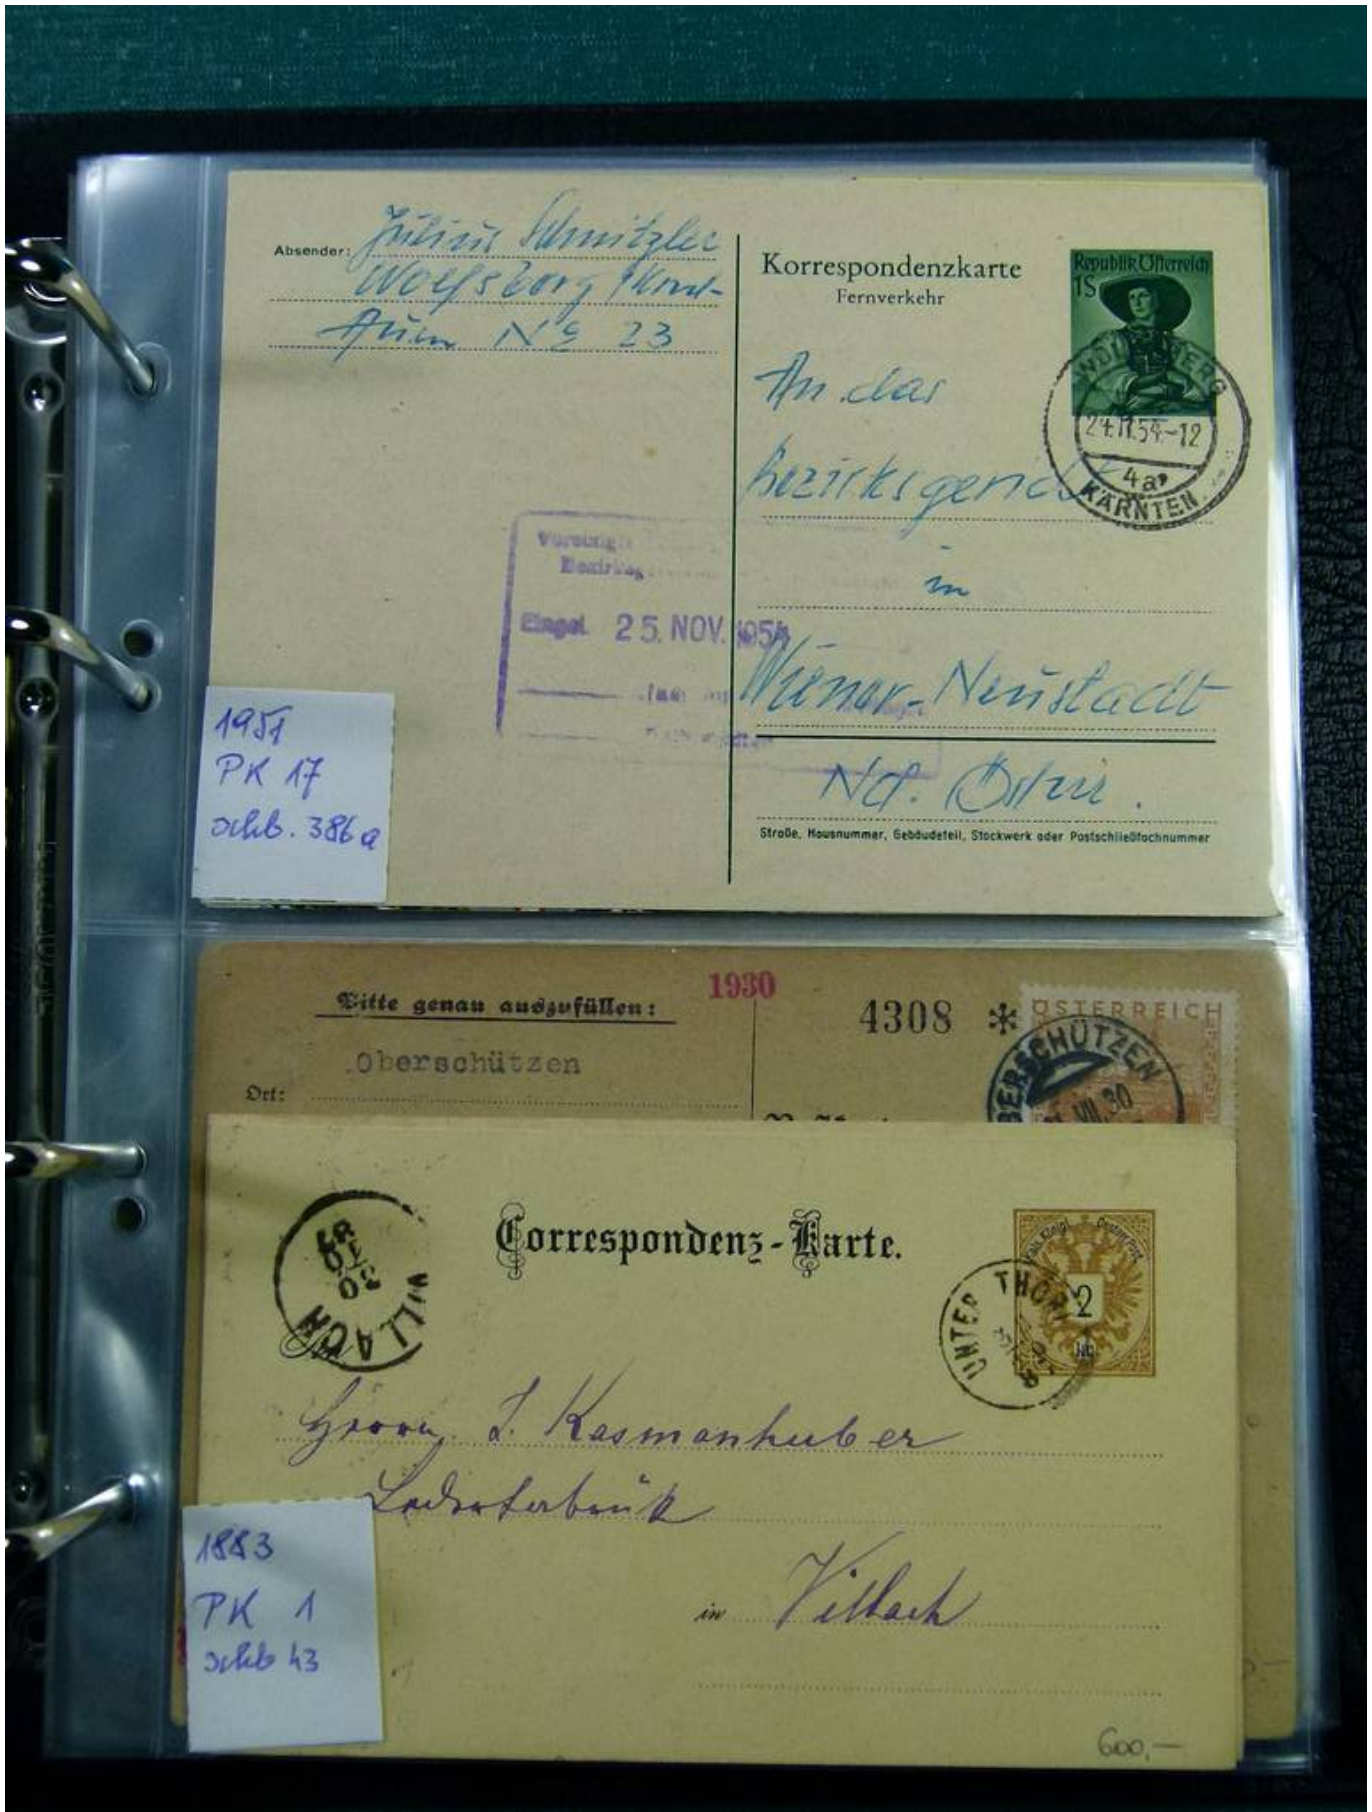 Absender: Julius Schnitzler
Wolfsberg
No 23
Korrespondenzkarte
Fernverkehr
Republik Österreich
1S
WOLFSBERG
24.11.54-12
4a
KÄRNTEN
An das
in
Eingel. 25. NOV. 1954
Wiener-Neustadt
Nd. Östrr.
Straße, Hausnummer, Gebäudeteil, Stockwerk oder Postschließfachnummer
1951
PK 17
schb. 386a
Bitte genau auszufüllen:
1930
4308 *
ÖSTERREICH
Oberschützen
Ort:
OBERSCHÜTZEN
VII.30
Correspondenz-Karte.
VILLACH
30
10
UNTER THÖRL
2
Herrn. J. Kasmanhuber
in Villach
1883
PK 1
schb 43
600,—